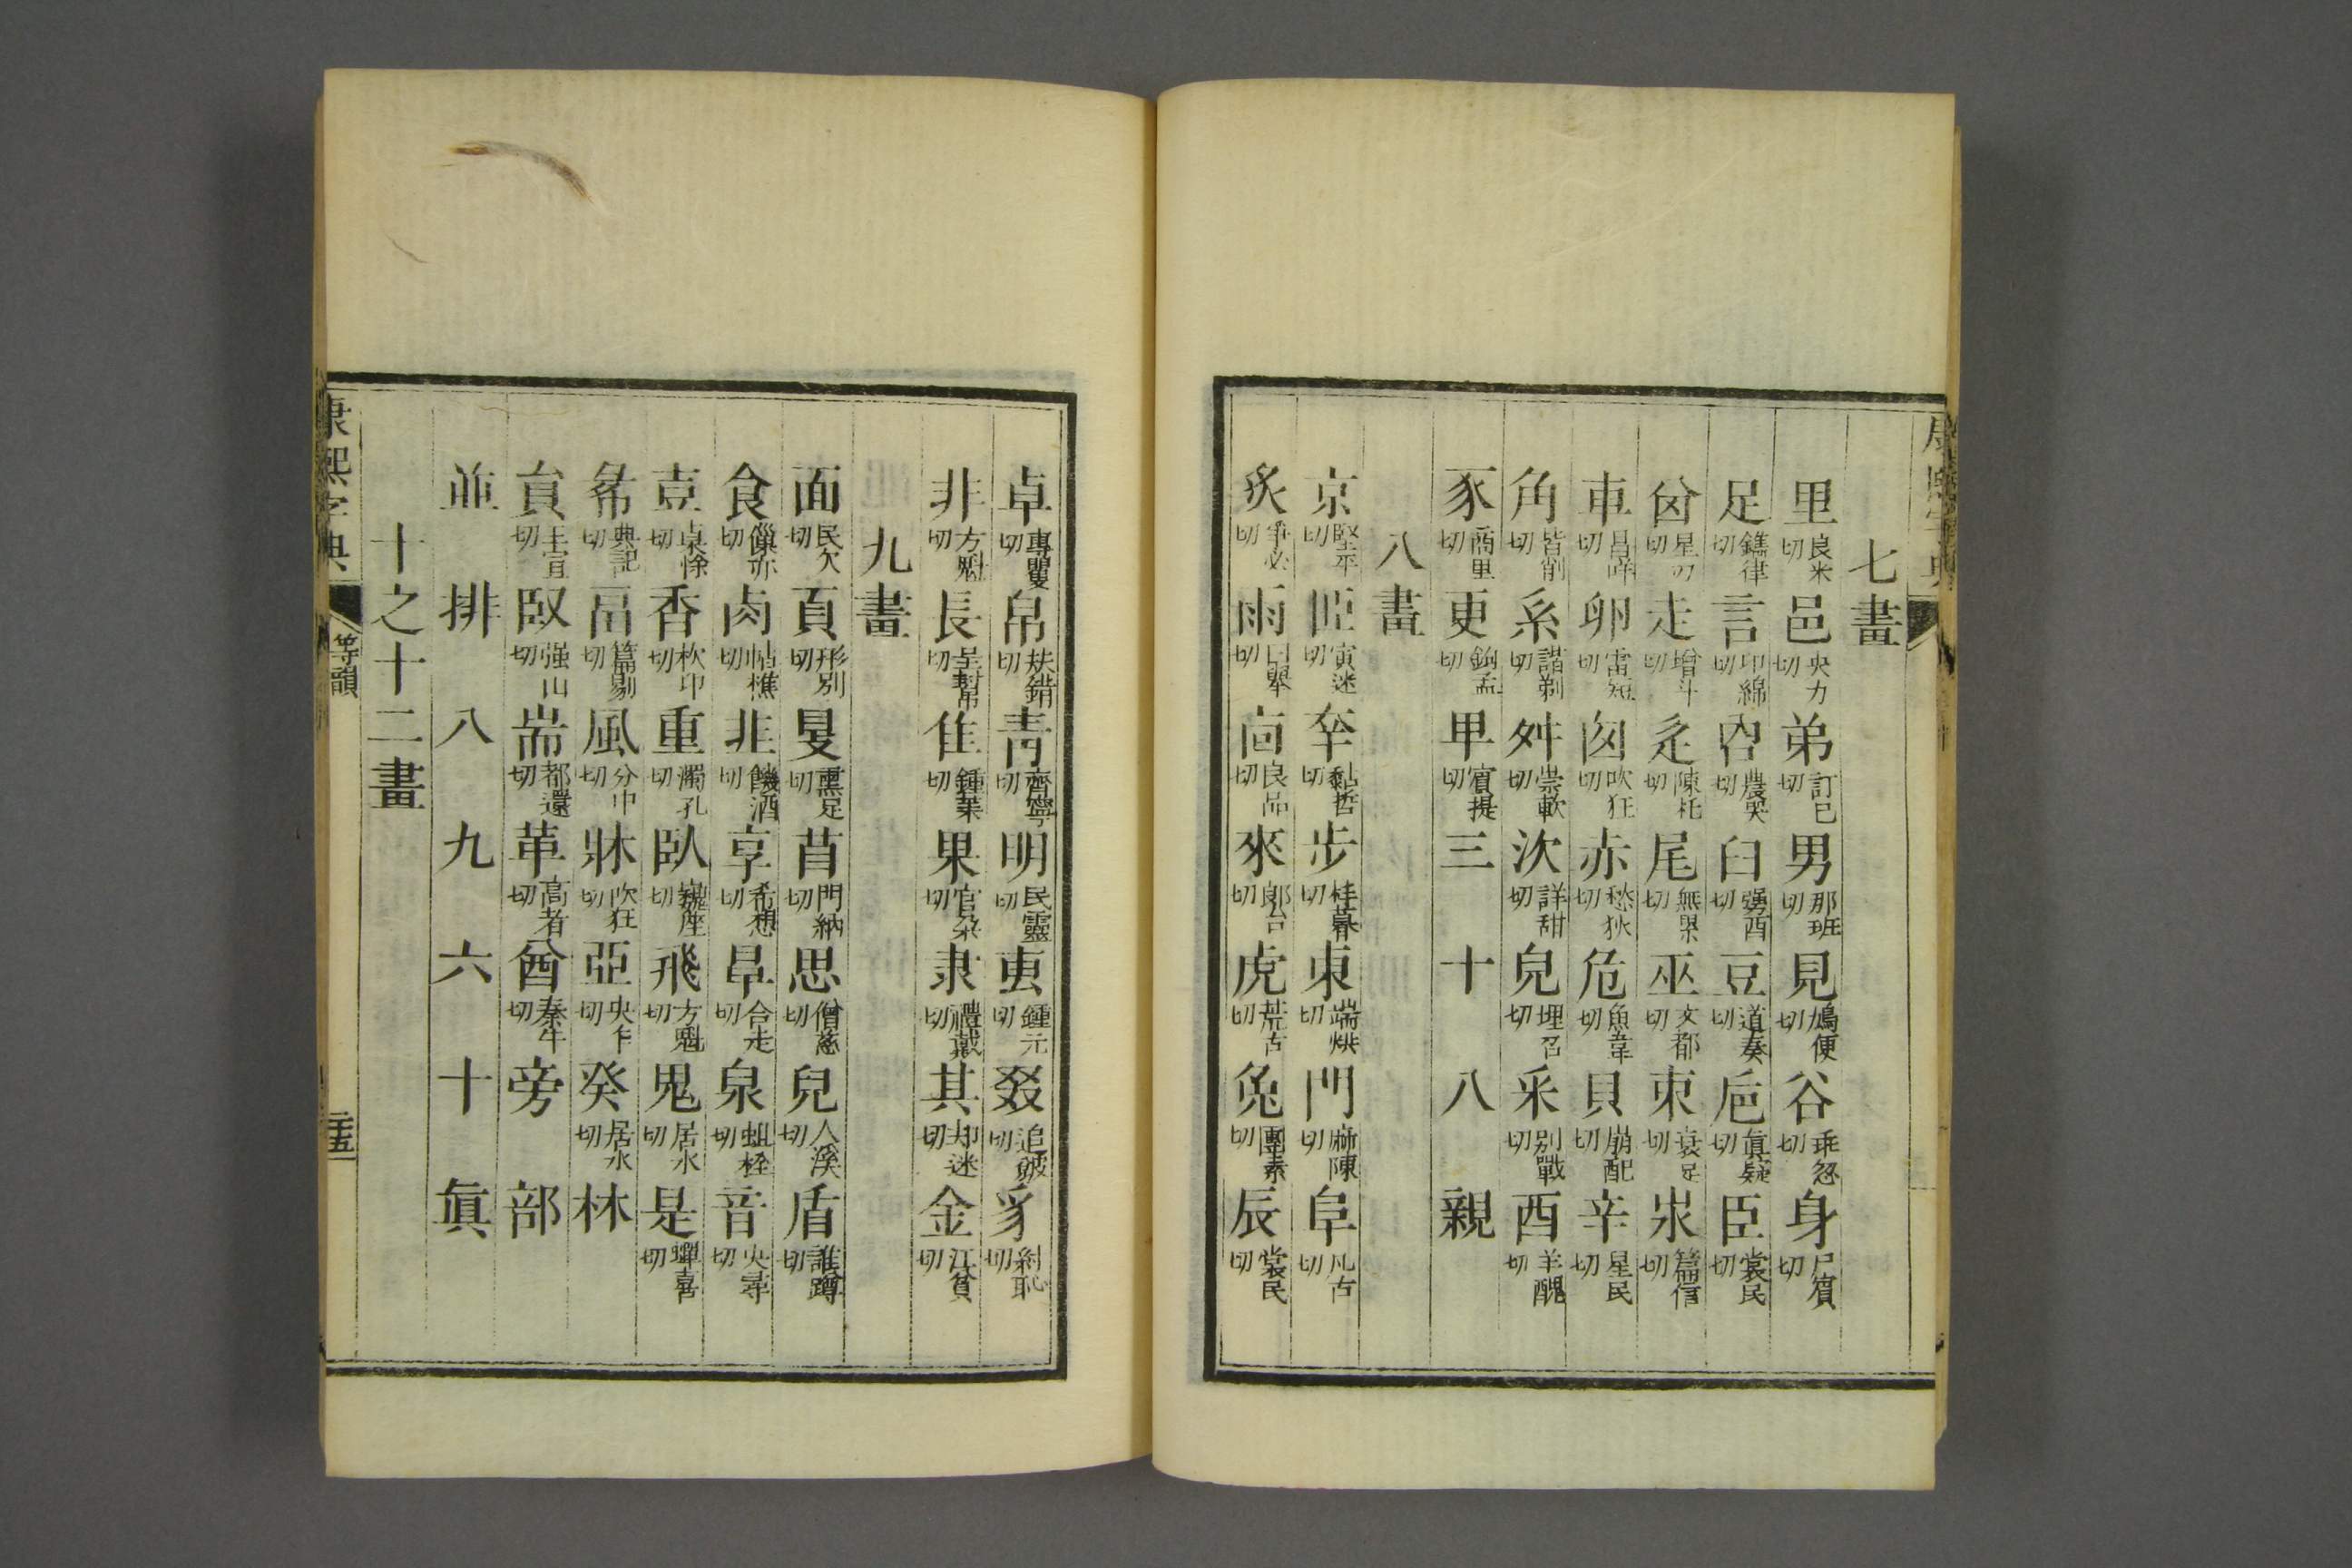 康熙字典
七畫
里良米切邑央力切弟訂已切男那班切見鳩便切谷乖忽切身尸賓切
足鐫律切言印綿切㕯農哭切臼彊酉切豆道奏切巵眞疑切臣裳民切
囟星切走增斗切辵陳柘切尾無累切巫文都切朿衰足切𣏟篇信切
車昌切卵雷短切囪吹狂切赤愁狄切危魚韋切貝崩配切辛星民切
角皆削切系諧剃切舛崇軟切㳄詳甜切皃埋召切釆別戰切酉羊醜切
豕商里切更鉤孟切甲賓提切三十八親
八畫
京堅平切臣寅迷切㚔黏哲切步桂暮切東端烘切門切阜凡古切
炙切雨切㐭良品切來郎台切虎荒古切兔團素切辰裳民切
卓專切帛扶錯切靑齊寧切明民靈切叀鍾元切叕追皴切豸切
非方魁切長切隹鍾葉切果官朶切隶禮戴切其却迷切金江貧切
九畫
面民欠切頁形別切𡕥熏足切苜門納切思僧慈切兒人溪切盾誰蹲切
食亦切鹵切韭饑酒切享希想切㫗合走切泉蛆栓切音央尋切
壴切香切重濁孔切臥巍座切飛方魁切鬼居水切是蟬喜切
㣇典記切畐篇剔切風分中切牀吹狂切亞央乍切癸居水切林
𠧪王宣切臤强山切耑都還切革高者切酋秦牛切旁部
並排八九六十眞
十之十二畫
康熙字典
等韻